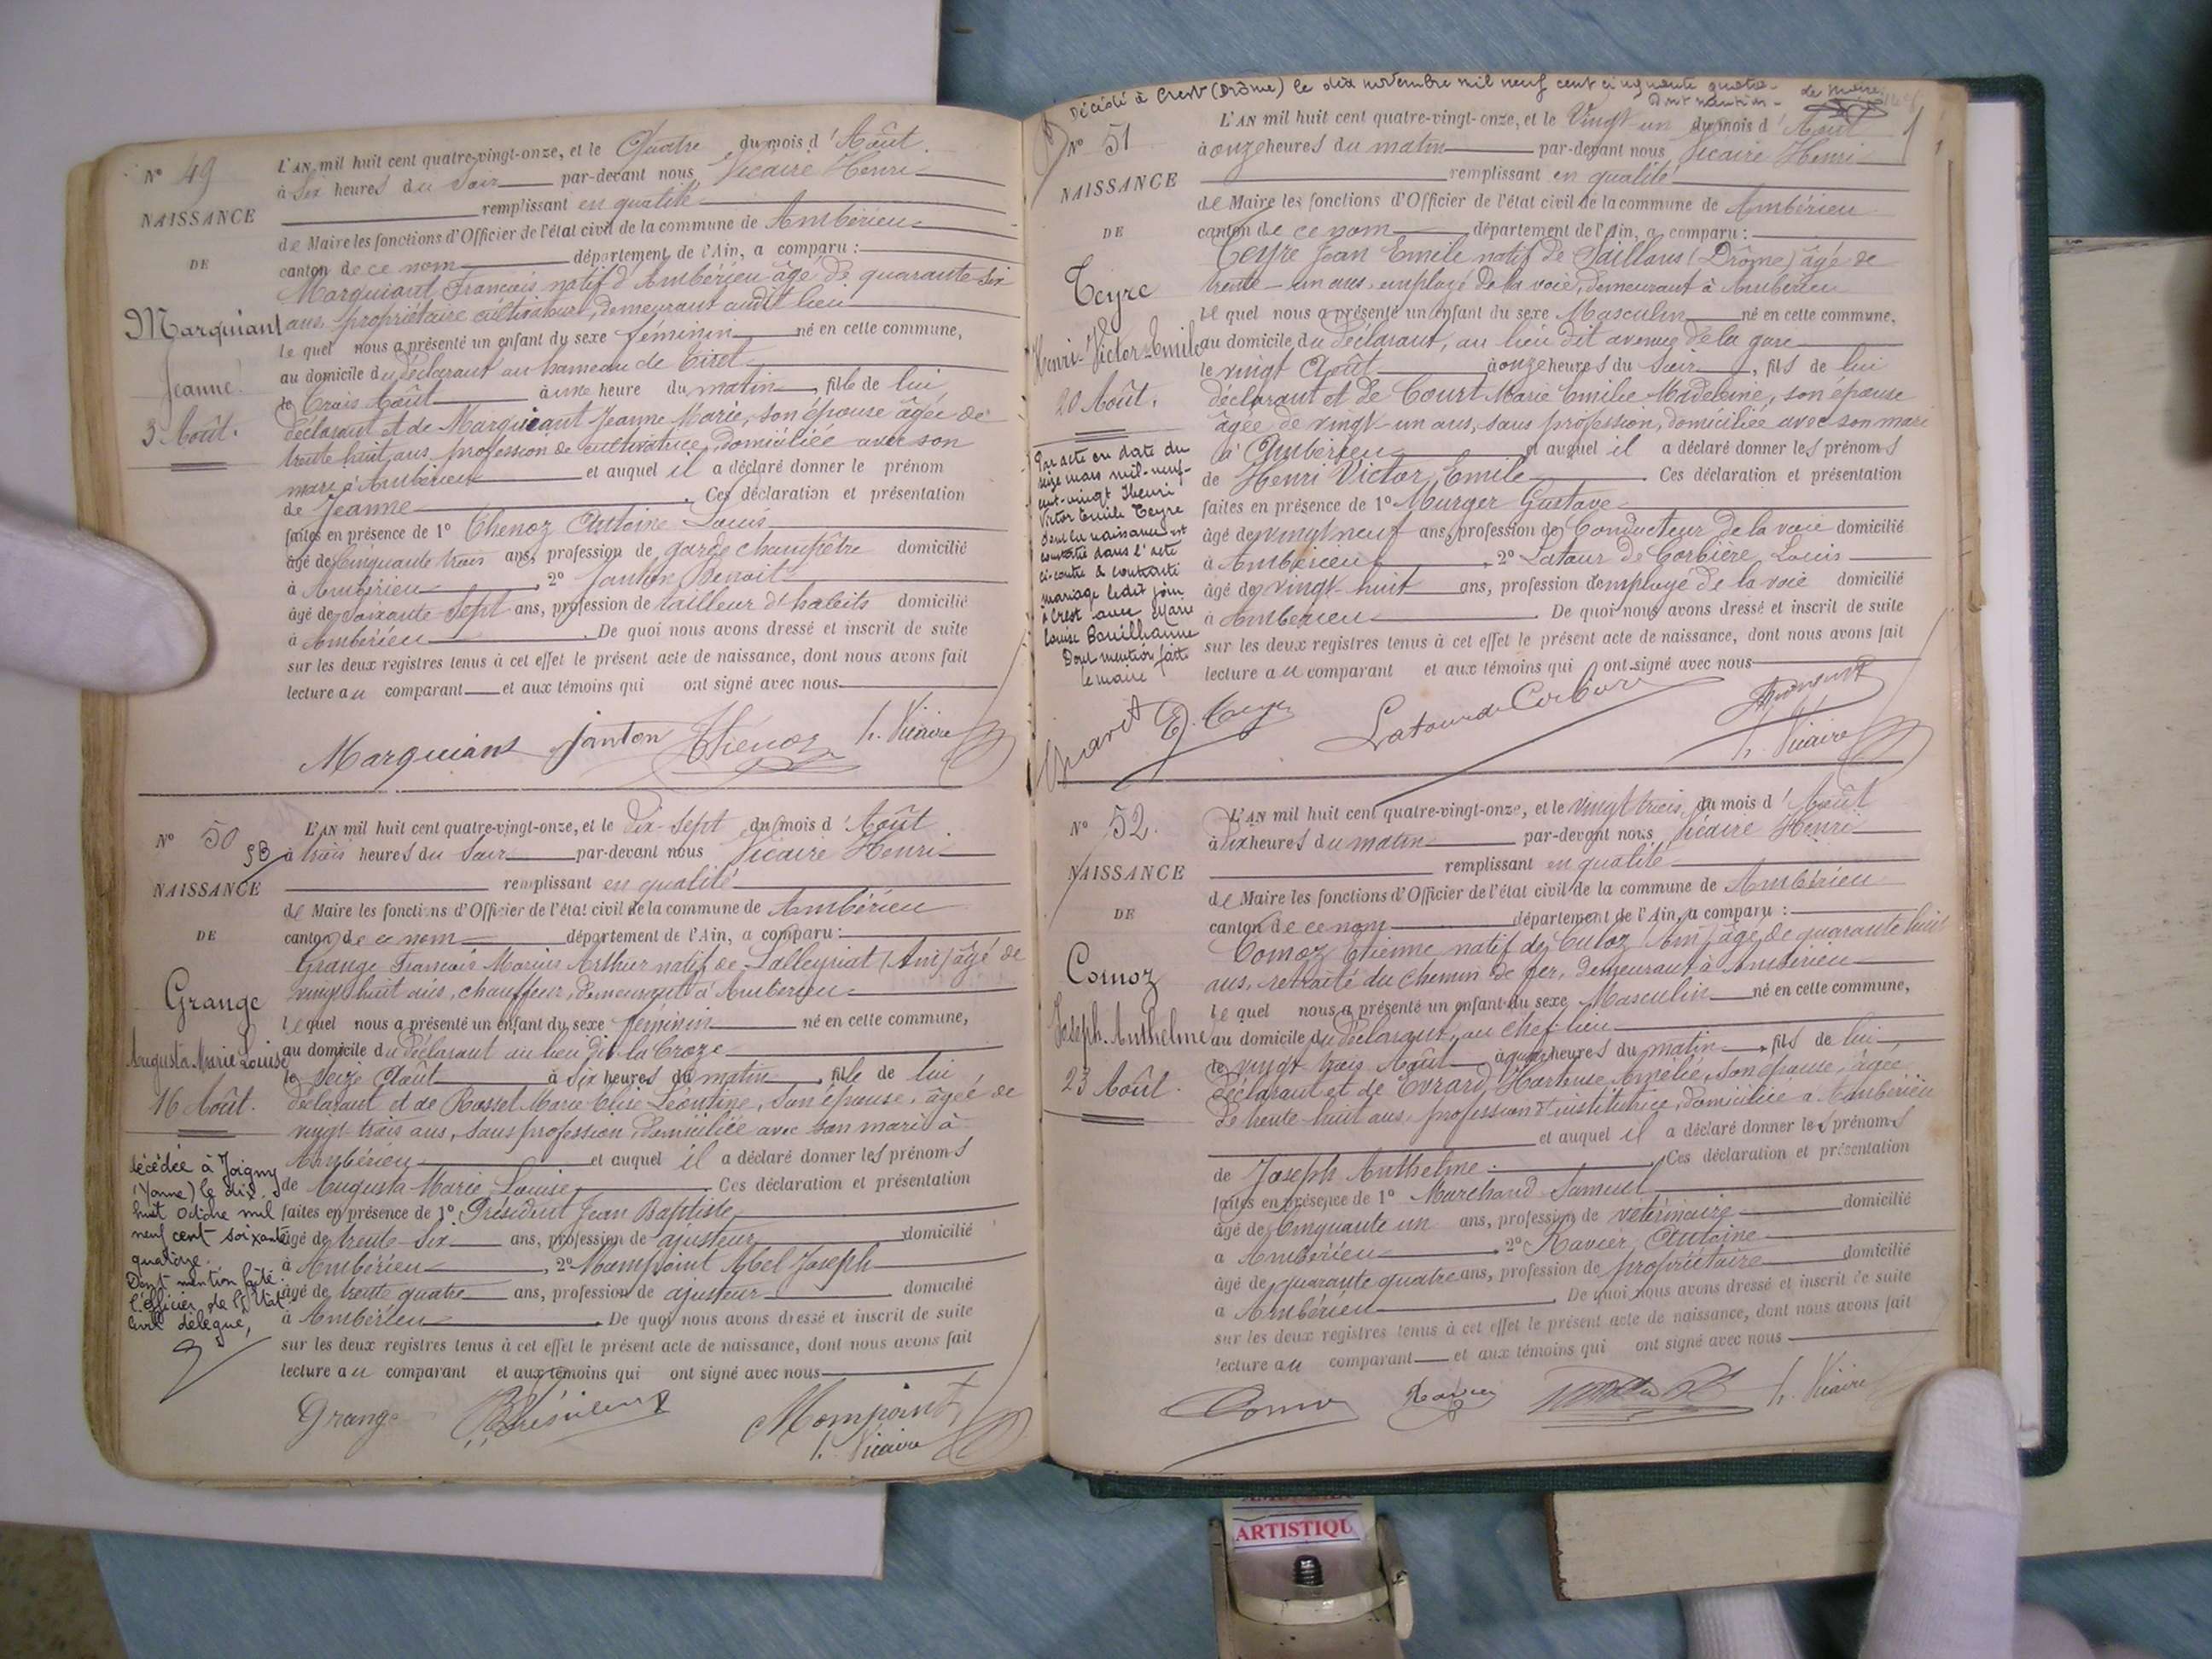 N° 49
NAISSANCE
DE
Marquiant
Jeanne
3 Août.
L'AN mil huit cent quatre-vingt-onze, et le Quatre du mois d'Août.
à Six heures du Soir par-devant nous Vicaire Henri
remplissant en qualité
de Maire les fonctions d'Officier de l'état civil de la commune de Ambérieu
canton de ce nom département de l'Ain, a comparu :
Marquiant François natif d'Ambérieu âgé de quarante-six
ans, propriétaire cultivateur, demeurant audit lieu
le quel nous a présenté un enfant du sexe féminin né en cette commune,
au domicile du déclarant au hameau de Tiret
le Trois Août à une heure du matin, fille de lui
déclarant et de Marquiant Jeanne Marie, son épouse âgée de
trente huit ans, profession de cultivatrice, domiciliée avec son
mari à Ambérieu et auquel il a déclaré donner le prénom
de Jeanne. Ces déclaration et présentation
faites en présence de 1° Thenoz Antoine Louis
âgé de Cinquante trois ans, profession de garde champêtre domicilié
à Ambérieu, 2° Janton Benoit
âgé de Soixante Sept ans, profession de tailleur d'habits domicilié
à Ambérieu. De quoi nous avons dressé et inscrit de suite
sur les deux registres tenus à cet effet le présent acte de naissance, dont nous avons fait
lecture au comparant et aux témoins qui ont signé avec nous
Marquiant Janton Thenoz h. Vicaire
N° 50
NAISSANCE
DE
Grange
Augusta Marie Louise
16 Août.
Décédée à Joigny
(Yonne) le dix
huit Octobre mil
neuf cent soixante
quatorze.
Dont mention faite.
L'officier de l'Etat
civil délégué,
L'AN mil huit cent quatre-vingt-onze, et le Dix-Sept du mois d'Août
à trois heures du Soir par-devant nous Vicaire Henri
remplissant en qualité
de Maire les fonctions d'Officier de l'état civil de la commune de Ambérieu
canton de ce nom département de l'Ain, a comparu :
Grange François Marius Arthur natif de Lalleyriat (Ain) âgé de
vingt huit ans, chauffeur, demeurant à Ambérieu
le quel nous a présenté un enfant du sexe féminin né en cette commune,
au domicile du déclarant au lieu dit la Croze
le Seize Août à Six heures du matin, fille de lui
déclarant et de Rosset Marie Elise Léontine, son épouse, âgée de
vingt trois ans, sans profession, domiciliée avec son mari à
Ambérieu et auquel il a déclaré donner les prénoms
de Augusta Marie Louise. Ces déclaration et présentation
faites en présence de 1° Président Jean Baptiste
âgé de trente-Six ans, profession de ajusteur domicilié
à Ambérieu, 2° Mompoint Abel Joseph
âgé de trente quatre ans, profession de ajusteur domicilié
à Ambérieu. De quoi nous avons dressé et inscrit de suite
sur les deux registres tenus à cet effet le présent acte de naissance, dont nous avons fait
lecture au comparant et aux témoins qui ont signé avec nous
Grange Président Mompoint
h. Vicaire
Décédé à Crest (Drôme) le dix novembre mil neuf cent cinquante quatre.
Dont mention. le Maire
N° 51
NAISSANCE
DE
Teyre
Henri-Victor-Emile
20 Août.
Par acte en date du
seize mars mil-neuf-
cent-vingt Henri
Victor Emile Teyre
dont la naissance est
constatée dans l'acte
ci-contre a contracté
mariage ledit jour
à Crest avec Marie
Louise Bouilhanne
Dont mention faite
le maire
L'AN mil huit cent quatre-vingt-onze, et le Vingt-un du mois d'Août
à onze heures du matin par-devant nous Vicaire Henri
remplissant en qualité
de Maire les fonctions d'Officier de l'état civil de la commune de Ambérieu
canton de ce nom département de l'Ain, a comparu :
Teyre Jean Emile natif de Saillans (Drôme) âgé de
trente-un ans, employé de la voie, demeurant à Ambérieu
le quel nous a présenté un enfant du sexe Masculin né en cette commune,
au domicile du déclarant, au lieu dit avenue de la gare
le vingt Août à onze heures du soir, fils de lui
déclarant et de Court Marie Emilie Madeleine, son épouse
âgée de vingt-un ans, sans profession, domiciliée avec son mari
à Ambérieu et auquel il a déclaré donner les prénoms
de Henri Victor Emile. Ces déclaration et présentation
faites en présence de 1° Murger Gustave
âgé de vingt neuf ans, profession de Conducteur de la voie domicilié
à Ambérieu, 2° Latour de Corbière Louis
âgé de vingt-huit ans, profession d'employé de la voie domicilié
à Ambérieu. De quoi nous avons dressé et inscrit de suite
sur les deux registres tenus à cet effet le présent acte de naissance, dont nous avons fait
lecture au comparant et aux témoins qui ont signé avec nous
E. Teyre Latour de Corbière
h. Vicaire
N° 52.
NAISSANCE
DE
Comoz
Joseph Anthelme
23 Août.
L'AN mil huit cent quatre-vingt-onze, et le Vingt trois du mois d'Août
à Dix heures du matin par-devant nous Vicaire Henri
remplissant en qualité
de Maire les fonctions d'Officier de l'état civil de la commune de Ambérieu
canton de ce nom département de l'Ain, a comparu :
Comoz Etienne natif de Culoz (Ain) âgé de quarante huit
ans, retraité du chemin de fer, demeurant à Ambérieu
le quel nous a présenté un enfant du sexe Masculin né en cette commune,
au domicile du déclarant, au chef-lieu
le vingt-trois Août à heures du matin, fils de lui
déclarant et de Evrard Hortense Amélie, son épouse, âgée
de trente-huit ans, profession d'institutrice, domiciliée à Ambérieu
et auquel il a déclaré donner les prénoms
de Joseph Anthelme. Ces déclaration et présentation
faites en présence de 1° Marchand Samuel
âgé de Cinquante un ans, profession de vétérinaire domicilié
à Ambérieu, 2° Ravier Antoine
âgé de quarante quatre ans, profession de propriétaire domicilié
à Ambérieu. De quoi nous avons dressé et inscrit de suite
sur les deux registres tenus à cet effet le présent acte de naissance, dont nous avons fait
lecture au comparant et aux témoins qui ont signé avec nous
Comoz Ravier h. Vicaire
ARTISTIQU